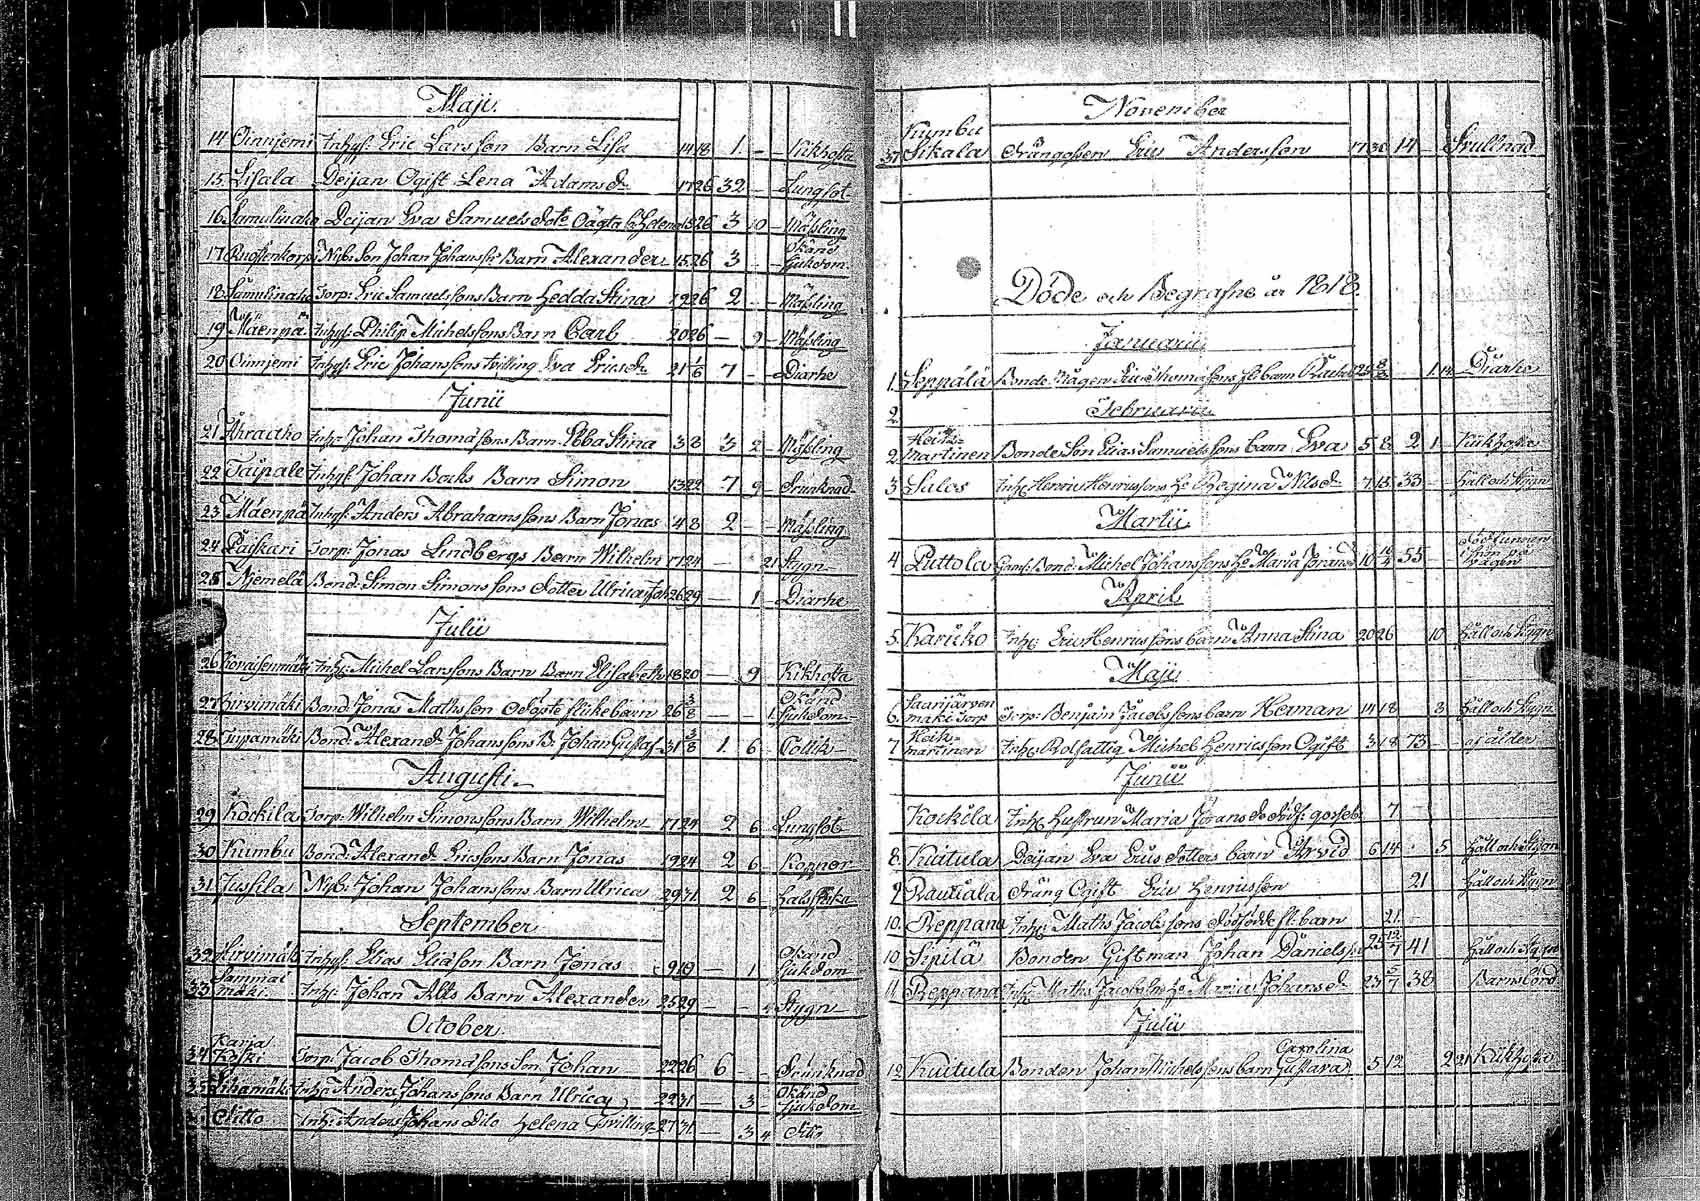 Maji.
14 Oinnjemi Inhys: Eric Larsson Barn Lisa 14 18 1 - - Kikhosta
15. Lisala Deijan Ogift Lena Adamsdr 17 26 32 - - Lungsot
16 Samulinaho Deijan Eva Samuelsdotr Oägta 15 26 3 10 - Mässling
17 Johan Johanss: Barn Alexander 15 26 3 - - Okänd sjukdom
18 Samulinaho Torp: Eric Samuelssons Barn Hedda Stina 19 26 2 - - Mässling
19 Mäenpä Inhys: Philip Michelssons Barn Carl 20 26 - 9 - Mässling
20 Oinnjemi Inhys: Eric Johanssons tvilling Eva Ericsdr 21 1/6 7 - Diarhe
Junii
21 Ahraitko Inhys Johan Thomassons Barn Ebba Stina 3 8 3 2 - Mässling
22 Taipale Inhys Johan Bocks Barn Simon 13 22 7 9 - Drunknad
23 Mäenpä Inhys: Anders Abrahamssons Barn Jonas 4 8 2 - - Mässling
24 Paiskari Torp: Jonas Lindbergs Barn Wilhelm 17 24 - - 21 Stygn
25 Njemelä Bond: Simon Simonssons Dotter Ulrica 26 29 - 1 Diarhe
Julii
26 Inhys: Michel Larssons Barn Barn Elisabeth 18 20 - 9 Kikhosta
27 Hirvimäki Bond: Jonas Mathsson Odöpte flickebarn 26 3/8 - - 1 Okänd Sjukdom
28 Tupamäki Bond: Alexand: Johanssons B: Johan Gustaf 31 3/8 1 6 - Collik
Augusti
29 Kockila Torp: Wilhelm Simonssons Barn Wilhelm 17 24 2 6 Lungsot
30 Kumbu Bond: Alexand: Ericssons Barn Jonas 19 24 2 6 Koppor
31 Jussila Nyb: Johan Johanssons Barn Ulrica 29 31 2 6 Halssjuka
September
32 Hirvimäki Inhys: Elias Eliasson Barn Jonas 9 19 - 1 Okänd sjukdom
33 Sammalmäki Inhys: Johan Alts Barn Alexander 25 29 - 4 Stygn
October
34 Karjakoski Torp: Jacob Thomassons Son Johan 22 26 6 - - Drunknad
35 Inhys Anders Johanssons Barn Ulrica 22 31 - 3 - Okänd sjukdom
Ditto Inh: Anders Johans Dito Helena Tvilling 27 31 - 3 4 Dito
November
37 Kumbu Sikala Drängossen Eric Andersson 17 30 14 - Svullnad
Döde och Begrafne år 1818.
Januarii
1. Seppälä Bonde Mågen Eric Thomassons fl: barn 1 14 Diarhe
2. Februarii
2. Heikmartinen Bonde Son Elias Samuelssons barn Eva 5 8 2 1 Kikhosta
3 Salos Inh: Henric Henricssons H: Regina Nilsdr 7 15 33 - - Håll och Stygn
Martii
4 Puttola Gamf: Bond: Michel Johanssons H: Maria 10 55 - Död funnen på vägen
April
5. Karuko Inh: Eric Henricssons barn Anna Stina 20 26 10 Håll och Stygn
Maji
6. Saarijärvenmäki Torp Torp: Benjam: Jacobssons barn Herman 14 18 3 Håll och Stygn
7 Heikmartinen Inh: Rotfattig Michel Henricsson Ogift 3 18 73 - af ålder
Junii
Kockila Inh: Hustrun Maria 7 -
8. Kuitula Deijan Eva Ericsdotters barn Arvid 6 14 5 Håll och Stygn
9 Rautiala Dräng Ogift Eric Henricsson 21 Håll och Stygn
10. Reppana Inh: Maths Jacobssons Dödfödde fl: barn - 21 -
10 Sipilä Bonden Gift man Johan Danielss: 25 12/7 41 Håll och Stygn
11 Reppana Inh: Maths Jacobssons H: Maria Johansdr 23 5/7 38 Barnsbörd
Julii
12. Kuitula Bonden Johan Michelssons barn Carolina Gustava 5 12 2 21 Kikhosta